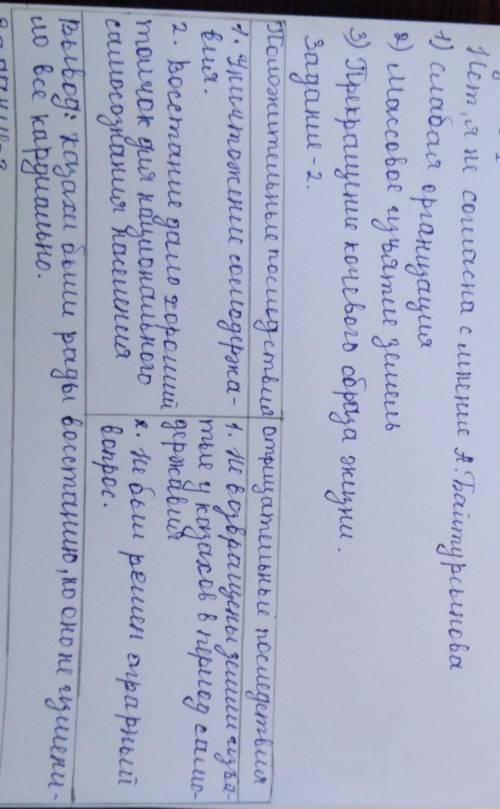 Нет, я не согласна с мнение А. Байтурсынова
1) слабая организация
2) массовое изъятие земель
3) Прекращение кочевого образа жизни.
Задание-2.
Положительные последствия
1. Уничтожение самодержа-
вия.
2. Восстание дало хороший
толчок для национального
самосознания населения
отрицательные последствия
1. Не возвращены земли изъя-
тые у казахов в период само-
державия
2. Не был решен аграрный
вопрос.
Вывод: казахи были рады восстанию, но оно не измени-
ло все кардиально.